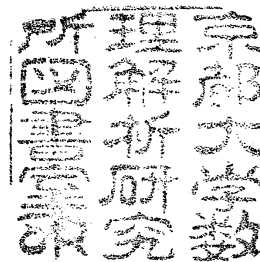 京都大学数
理解析研究
所図書